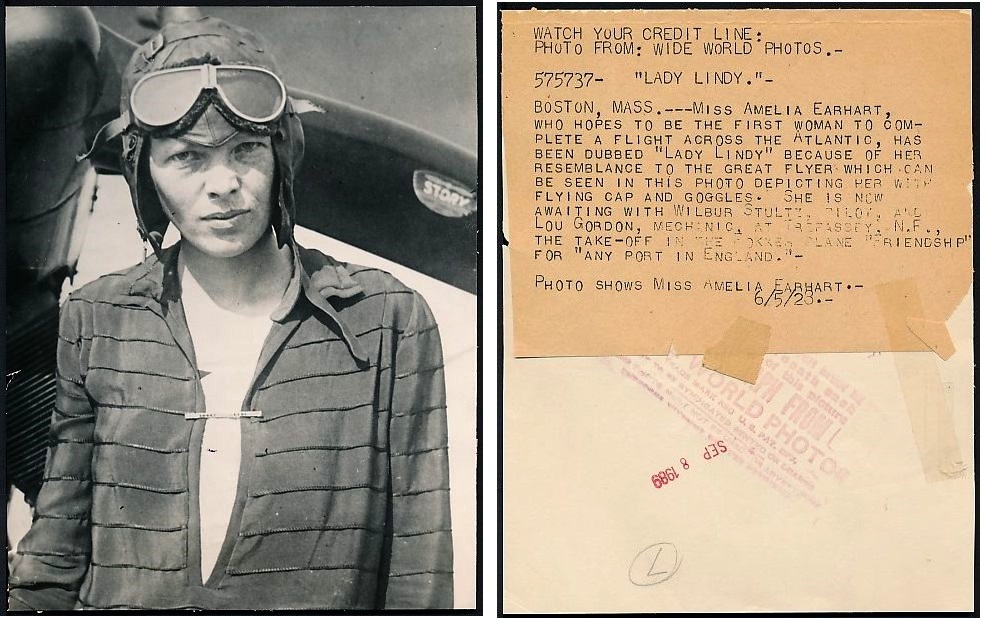 STORY
WATCH YOUR CREDIT LINE:
PHOTO FROM: WIDE WORLD PHOTOS.-
575737- "LADY LINDY."-
BOSTON, MASS.---MISS AMELIA EARHART,
WHO HOPES TO BE THE FIRST WOMAN TO COM-
PLETE A FLIGHT ACROSS THE ATLANTIC, HAS
BEEN DUBBED "LADY LINDY" BECAUSE OF HER
RESEMBLANCE TO THE GREAT FLYER WHICH CAN
BE SEEN IN THIS PHOTO DEPICTING HER WITH
FLYING CAP AND GOGGLES. SHE IS NOW
AWAITING WITH WILBUR STULTZ, PILOT, AND
LOU GORDON, MECHANIC, AT TREPASSEY, N.F.,
THE TAKE-OFF IN THE FOKKER PLANE "FRIENDSHIP"
FOR "ANY PORT IN ENGLAND."-
PHOTO SHOWS MISS AMELIA EARHART.-
6/5/28.-
WORLD PHOTOS
SEP 8 1989
L